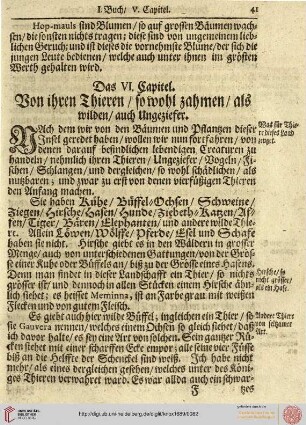 I. Buch/ V. Capitel. 41
Hop-mauls sind Blumen/ so auf grossen Bäumen wach-
sen/ die sonsten nichts tragen; diese sind von ungemeinem lieb-
lichen Geruch; und ist dieses die vornehmste Blume/ der sich die
jungen Leute bedienen/ welche auch unter ihnen im grösten
Werth gehalten wird.
Das VI. Capitel.
Von ihren Thieren / so wohl zahmen/ als
wilden/ auch Ungeziefer.
Nach dem wir von den Bäumen und Pflantzen dieser
Insel geredet haben/ wollen wir nun fortfahren/ von
denen darauf befindlichen lebendigen Creaturen zu
handeln/ nehmlich ihren Thieren/ Ungeziefer/ Vögeln/ Fi-
schen/ Schlangen/ und dergleichen/ so wohl schädlichen/ als
nutzbaren; und zwar zu erst von denen vierfüßigen Thieren
den Anfang machen.
Was für Thie-
re dieses Land
zeuget.
Sie haben Kühe/ Büffel-Ochsen/ Schweine/
Ziegen/ Hirsche/ Hasen/ Hunde/ Ziebeth-Katzen/ Af-
fen/ Tieger/ Bären/ Elephanten/ und andere wilde Thie-
re. Allein Löwen/ Wölffe/ Pferde/ Esel und Schafe
haben sie nicht. Hirsche giebt es in den Wäldern in grosser
Menge/ auch von unterschiedenen Gattungen/ von der Grös-
se einer Kuhe oder Büffels an/ biß zu der Grösse eines Hasens.
Denn man findet in dieser Landschafft ein Thier/ so nichts
grösser ist/ und dennoch in allen Stücken einem Hirsche ähn-
lich siehet; es heisset Meminna; ist an Farbe grau mit weißen
Flecken und von gutem Fleisch.
Hirsche/ so
nicht grösser/
als ein Hase.
Es giebt auch hier wilde Büffel; ingleichen ein Thier/ so
sie Gauvera nennen/ welches einem Ochsen so gleich siehet/ daß
ich davor halte/ es sey eine Art von solchen. Sein gantzer Rü-
cken stehet mit einer scharffen Ecke empor; alle seine vier Füsse
biß um die Helffte der Schenckel sind weiß. Ich habe nicht
mehr/ als eines dergleichen gesehen/ welches unter des Köni-
ges Thieren verwahret ward. Es war allda auch ein schwar-
Andere Thiere
von seltzamer
Art.
F
tzes